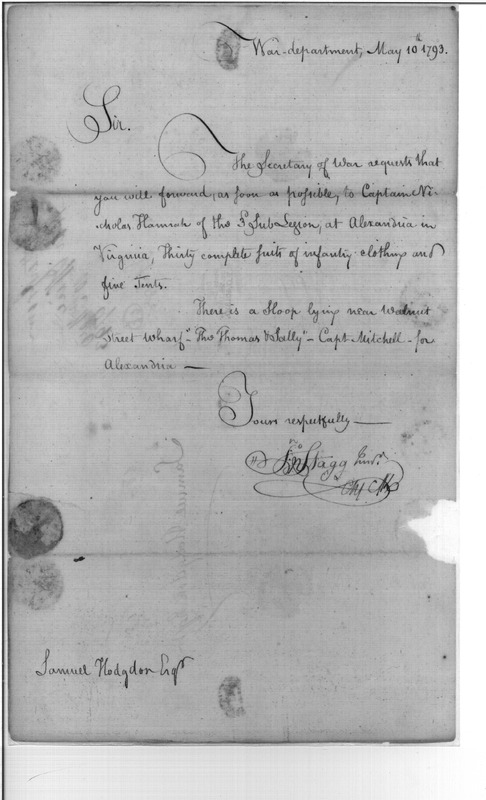 War-department, May 10th 1793.
Sir.
The Secretary of War requests that
you will forward, as soon as possible, to Captain Ni-
cholas Hannah of the 3d Sub Legion, at Alexandria in
Virginia, Thirty complete suits of infantry clothing and
five Tents.
There is a Sloop lying near Walnut
street wharf "The Thomas & Sally" - Capt Mitchell - for
Alexandria —
Yours respectfully —
Jno Stagg Junr
Chf Clk
Samuel Hodgdon Esqr